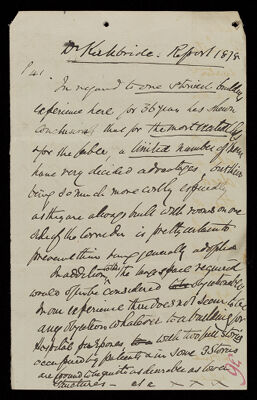 Dr Kirkbride. Report 1878
P 41.
In regard to one storied building
experience here for 36 years has shown
conclusively that for the most excitable
& for the feeble, a limited number of them
have very decided advantages, but their
being so much more costly especially
as they are always built with rooms on one
side of the corridor is pretty certain to
prevent their being generally adopted
In addition, to the large space required
would often be considered objectionable
In our experience there does not seem to be
any objections whatever to a building for
hospital purposes with two full stories
occupied by patients & in some 3 stories
are found to be quite as desirable as lower
structures - etc x x x